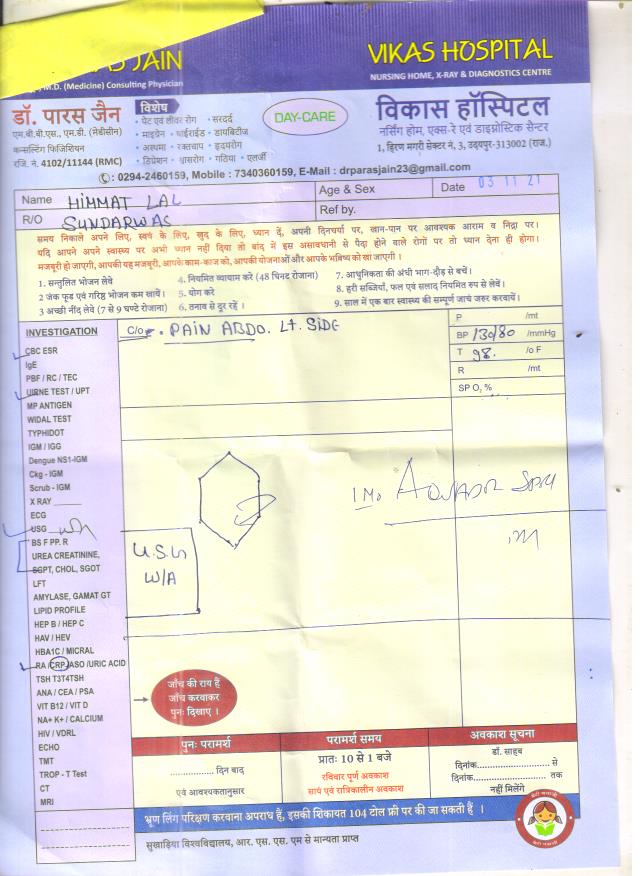 JAIN
M.D. (Medicine) Consulting Physician
VIKAS HOSPITAL
NURSING HOME, X-RAY & DIAGNOSTICS CENTRE
डॉ. पारस जैन
एम.बी.बी.एस., एम.डी. (मेडीसीन)
कन्सल्टिंग फिजिशियन
रजि. नं. 4102/11144 (RMC)
विशेष
• पेट एवं लीवर रोग • सरदर्द
• माइग्रेन • थाईराईड • डायबिटीज
• अस्थमा • रक्तचाप • हृदयरोग
• डिप्रेशन • श्वासरोग • गठिया • एलर्जी
DAY-CARE
विकास हॉस्पिटल
नर्सिंग होम, एक्स-रे एवं डाइग्नोस्टिक सेन्टर
1, हिरण मगरी सेक्टर नं. 3, उदयपुर-313002 (राज.)
: 0294-2460159, Mobile : 7340360159, E-Mail : drparasjain23@gmail.com
Name HIMMAT LAL
Age & Sex
Date 03 11 21
R/O SUNDARWAS
Ref by.
समय निकाले अपने लिए, स्वयं के लिए, खुद के लिए, ध्यान दें, अपनी दिनचर्या पर, खान-पान पर आवश्यक आराम व निद्रा पर।
यदि आपने अपने स्वास्थ्य पर अभी ध्यान नहीं दिया तो बाद में इस असावधानी से पैदा होने वाले रोगों पर तो ध्यान देना ही होगा।
मजबूरी हो जाएगी, आपकी यह मजबूरी, आपके काम-काज को, आपकी योजनाओं और आपके भविष्य को खा जाएगी।
1. सन्तुलित भोजन लेवे
2 जंक फूड एवं गरिष्ठ भोजन कम खायें।
3 अच्छी नींद लेवे (7 से 9 घण्टे रोजाना)
4. नियमित व्यायाम करे (48 मिनट रोजाना)
5. योग करे
6. तनाव से दूर रहें।
7. आधुनिकता की अंधी भाग-दौड़ से बचें।
8. हरी सब्जियाँ, फल एवं सलाद नियमित रुप से लेवें।
9. साल में एक बार स्वास्थ्य की सम्पूर्ण जाचं जरुर करवायें।
INVESTIGATION
CBC ESR
IgE
PBF / RC / TEC
UIRNE TEST / UPT
MP ANTIGEN
WIDAL TEST
TYPHIDOT
IGM / IGG
Dengue NS1-IGM
Ckg - IGM
Scrub - IGM
X RAY
ECG
USG
BS F PP. R
UREA CREATININE,
SGPT, CHOL, SGOT
LFT
AMYLASE, GAMAT GT
LIPID PROFILE
HEP B / HEP C
HAV / HEV
HBA1C / MICRAL
RA /CRP/ASO /URIC ACID
TSH T3T4TSH
ANA / CEA / PSA
VIT B12 / VIT D
NA+ K+ / CALCIUM
HIV / VDRL
ECHO
TMT
TROP - T Test
CT
MRI
C/o PAIN ABDO. Lt. SIDE
P /mt
BP 130/80 /mmHg
T 98. /o F
R /mt
SP O, %
U.S.G
W/A
जाँच की राय हैं
जाँच करवाकर
पुनः दिखाए।
पुनः परामर्श
दिन बाद
एवं आवश्यकतानुसार
परामर्श समय
प्रातः 10 से 1 बजे
रविवार पूर्ण अवकाश
सायं एवं रात्रिकालीन अवकाश
अवकाश सूचना
डॉ. साहब
दिनांक............ से
दिनांक............ तक
नहीं मिलेंगे
भ्रूण लिंग परिक्षण करवाना अपराध हैं, इसकी शिकायत 104 टोल फ्री पर की जा सकती हैं ।
सुखाड़िया विश्वविद्यालय, आर. एस. एस. एम से मान्यता प्राप्त